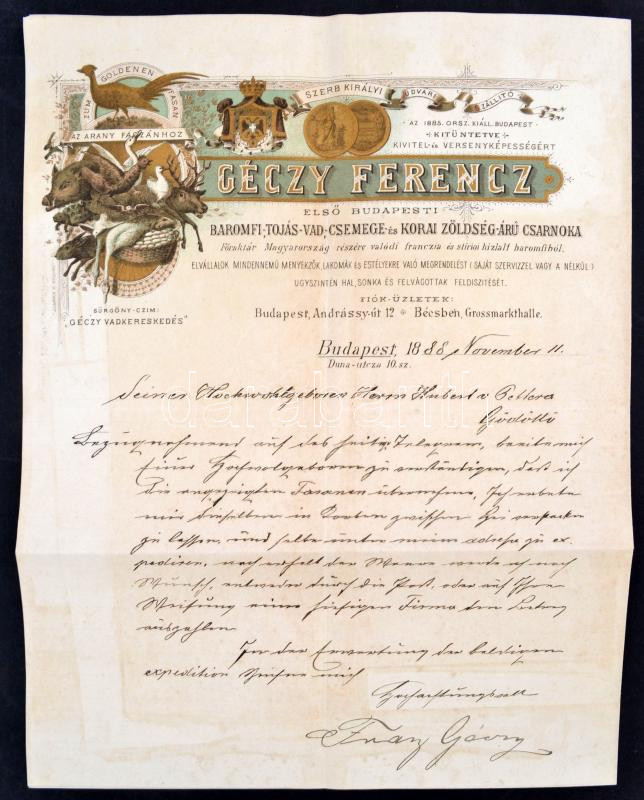 ZUM GOLDENEN FASAN
AZ ARANY FÁCZÁNHOZ
SZERB KIRÁLYI UDVARI SZÁLLÍTÓ
AZ 1885. ORSZ. KIÁLL. BUDAPEST
KITÜNTETVE
KIVITEL-és VERSENYKÉPESSÉGÉRT
GÉCZY FERENCZ
ELSŐ BUDAPESTI
BAROMFI-,TOJÁS-,VAD-,CSEMEGE-és KORAI ZÖLDSÉG-ÁRÚ CSARNOKA
Főraktár Magyarország részére valódi franczia és stiriai hizlalt baromfiból.
ELVÁLLALOK MINDENNEMŰ MENYEKZŐK, LAKOMÁK és ESTÉLYEKRE VALÓ MEGRENDELÉST (SAJÁT SZERVIZZEL VAGY A NÉLKÜL)
UGYSZINTÉN HAL, SONKA ÉS FELVÁGOTTAK FELDISZITÉSÉT.
FIÓK-ÜZLETEK:
Budapest, Andrássy-út 12 * Bécsben, Grossmarkthalle.
SÜRGÖNY-CZIM:
"GÉCZY VADKERESKEDÉS"
Budapest, 1888 November 11.
Duna-utcza 10. sz.
Seiner Hochwohlgeboren Herrn Hubert v
Gödöllő
Bezugnehmend auf das heutige Telegram, beeile mich
Euer Hochwolgeboren zu verständigen, daß ich
die angezeigten Fasanen übernehme. Ich erbete
mir dieselben in Körben zwischen verpacken
zu lassen, und selbe unter meine adresse zu ex-
pediren, nach erhalt der Waare werde ich nach
Wunsch, entweder durch die Post, oder auf Ihre
Weisung einer hiesigen Firma den Betrag
auszahlen.
In der Erwartung der baldigen
expedition zeichne mich
Hochachtungsvoll
Franz Géczy
darabanth.com